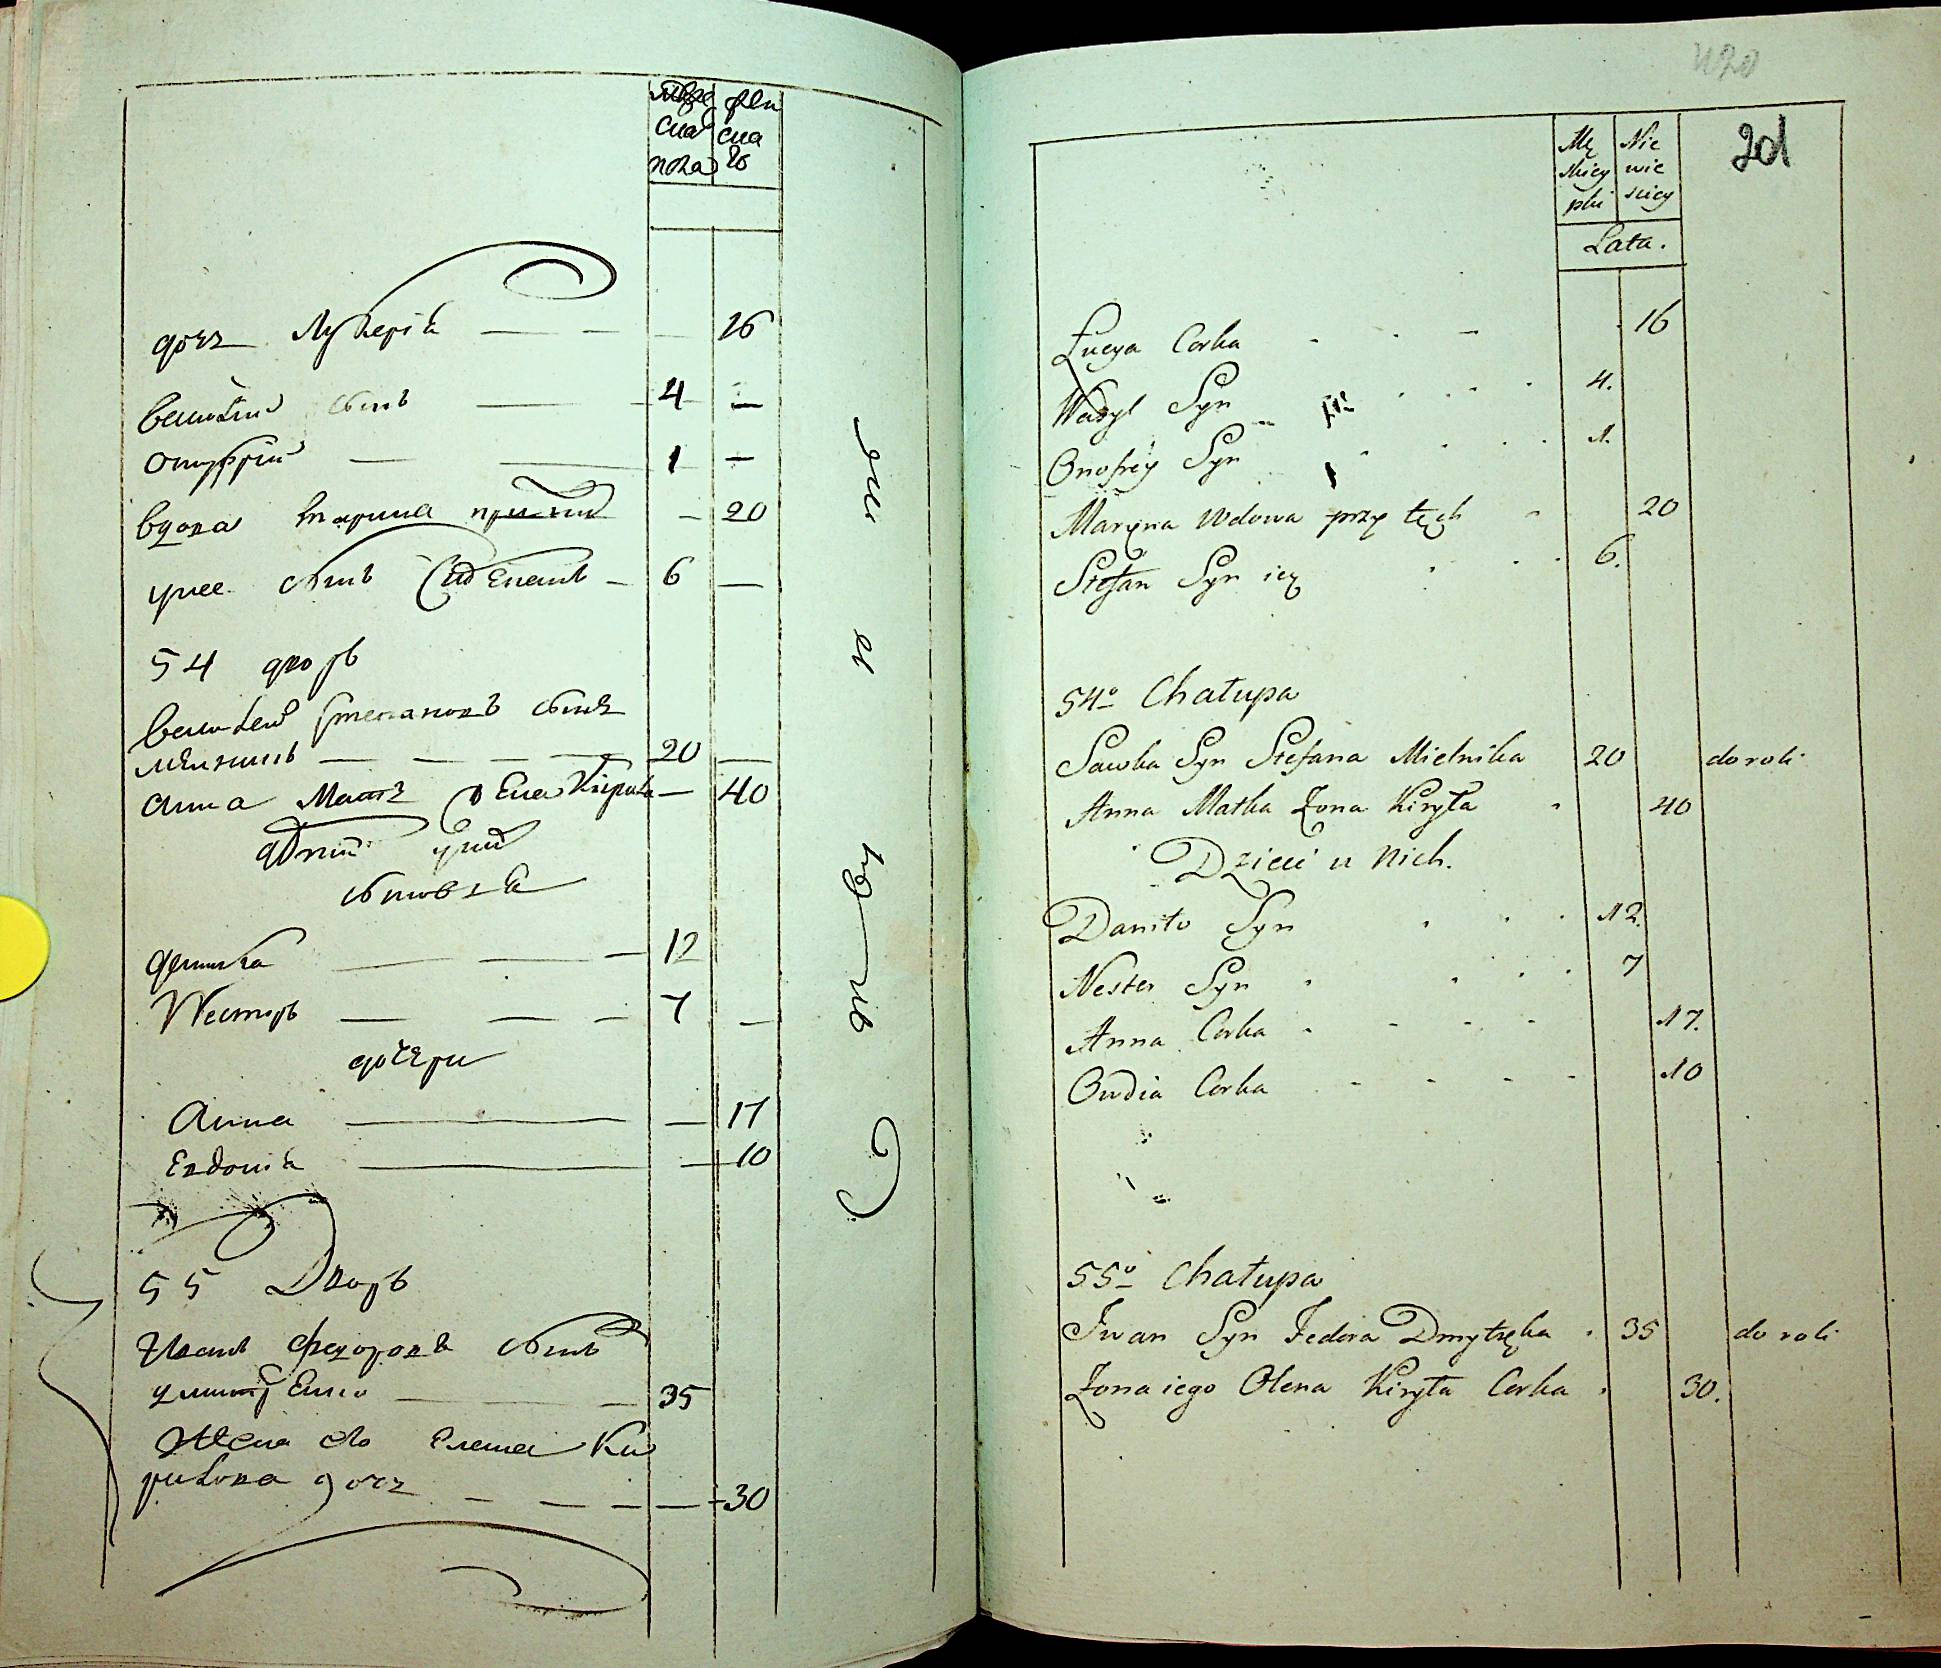 дочь Лукерія — — — 16
Василій сынъ — 4 —
Онуфрій — 1 —
вдова Марина при ний — 20
у нее сынъ Степанъ — 6 —
54 дворъ
Василей Степановъ сынъ
мельникъ — 20 —
Анна Мать Жена Кирила — 40
дѣти
сыновья
Нестиръ — 7 —
дочери
Анна — 17
Евдокия — 10
55 Дворъ
Иванъ Федоровъ сынъ
— 35
Жена его Елена Ки
рилова дочь — 30
420
201
Mę
skiey
płci
Nie
wie
sciey
Lata.
Łucya Corka 16
Wasyl Syn 4.
Onofrey Syn 1.
Maryna Wdowa przy tych 20
Stefan Syn iey 6.
54o Chałupa
Sawka Syn Stefana Mielnika 20 do roli
Anna Matka Żona Kiryła 40
Dzieci u Nich.
Daniło Syn 12.
Nester Syn 7
Anna Corka 17.
Owdia Corka 10
55o Chałupa
Iwan Syn Fedora Dmytręka 35 do roli
Żona iego Olena Kiryła Corka 30.